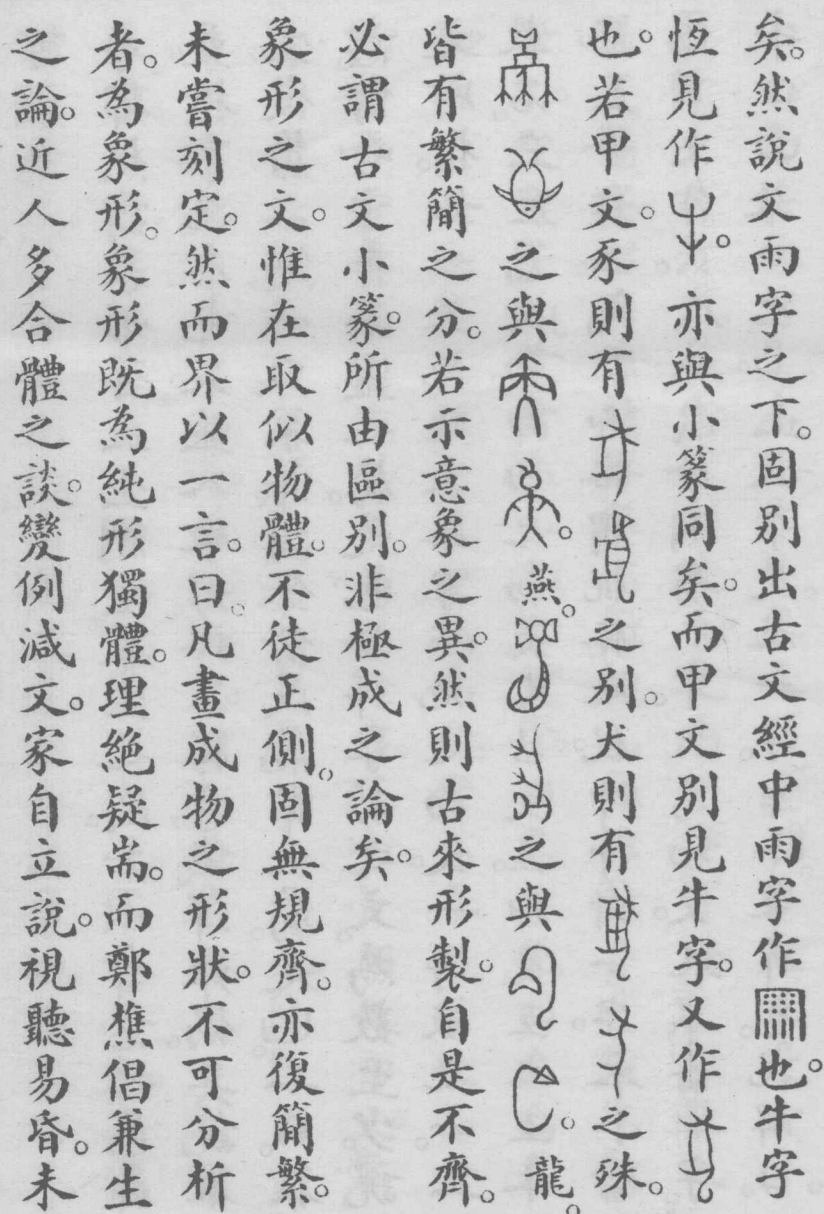 矣。然說文雨字之下。固別出古文經中雨字作也。牛字
恆見作。亦與小篆同矣。而甲文別見牛字。又作
也。若甲文。豕則有之別。犬則有之殊。
之與。燕。之與。龍。
皆有繁簡之分。若示意象之異。然則古來形製。自是不齊。
必謂古文小篆。所由區別。非極成之論矣。
象形之文。惟在取似物體。不徒正側。固無規齊。亦復簡繁。
未嘗刻定。然而界以一言。曰。凡畫成物之形狀。不可分析
者。為象形。象形既為純形獨體。理絕疑耑。而鄭樵倡兼生
之論。近人多合體之談。變例減文。家自立說。視聽易昏。未